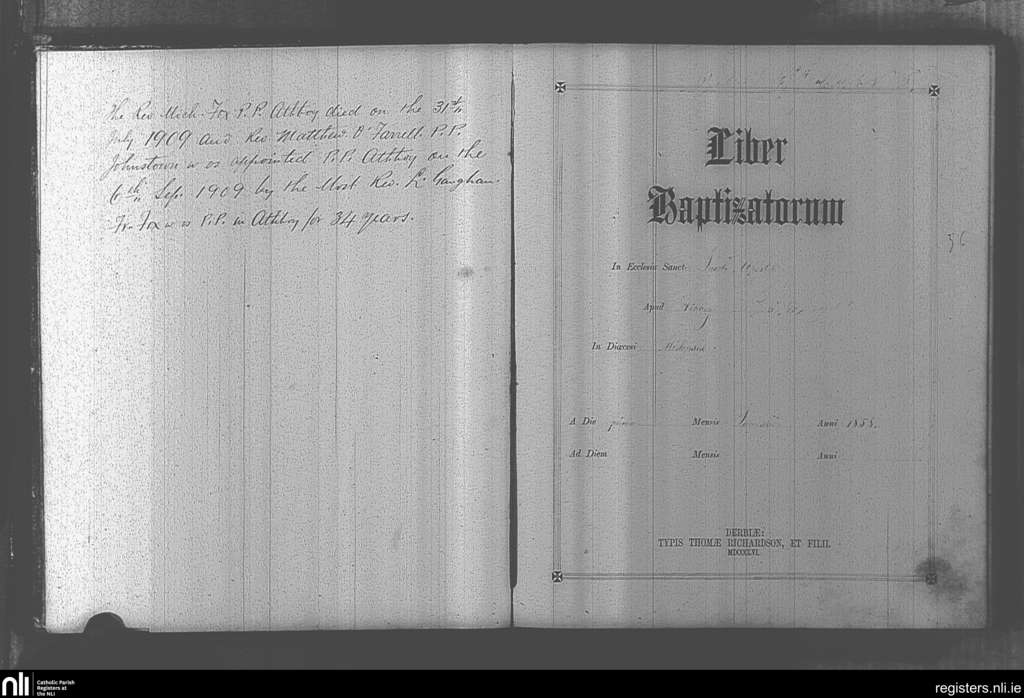 The Rev. Mich. Fox P.P. Athboy died on the 31st
July 1909 and Rev. Matthew O'Farrell P.P.
Johnstown was appointed P.P. Athboy on the
6th Sep. 1909 by the Most Rev. Dr. Gaughan.
Fr. Fox was P.P. in Athboy for 34 years.
Liber
Baptizatorum
36
In Ecclesia Sanct
Apud
In Diœcesi
A Die Mensis Anni 1858.
Ad Diem Mensis Anni
DERBIÆ:
TYPIS THOMÆ RICHARDSON, ET FILII.
MDCCCLVI.
nli
Catholic Parish
Registers at
the NLI
registers.nli.ie